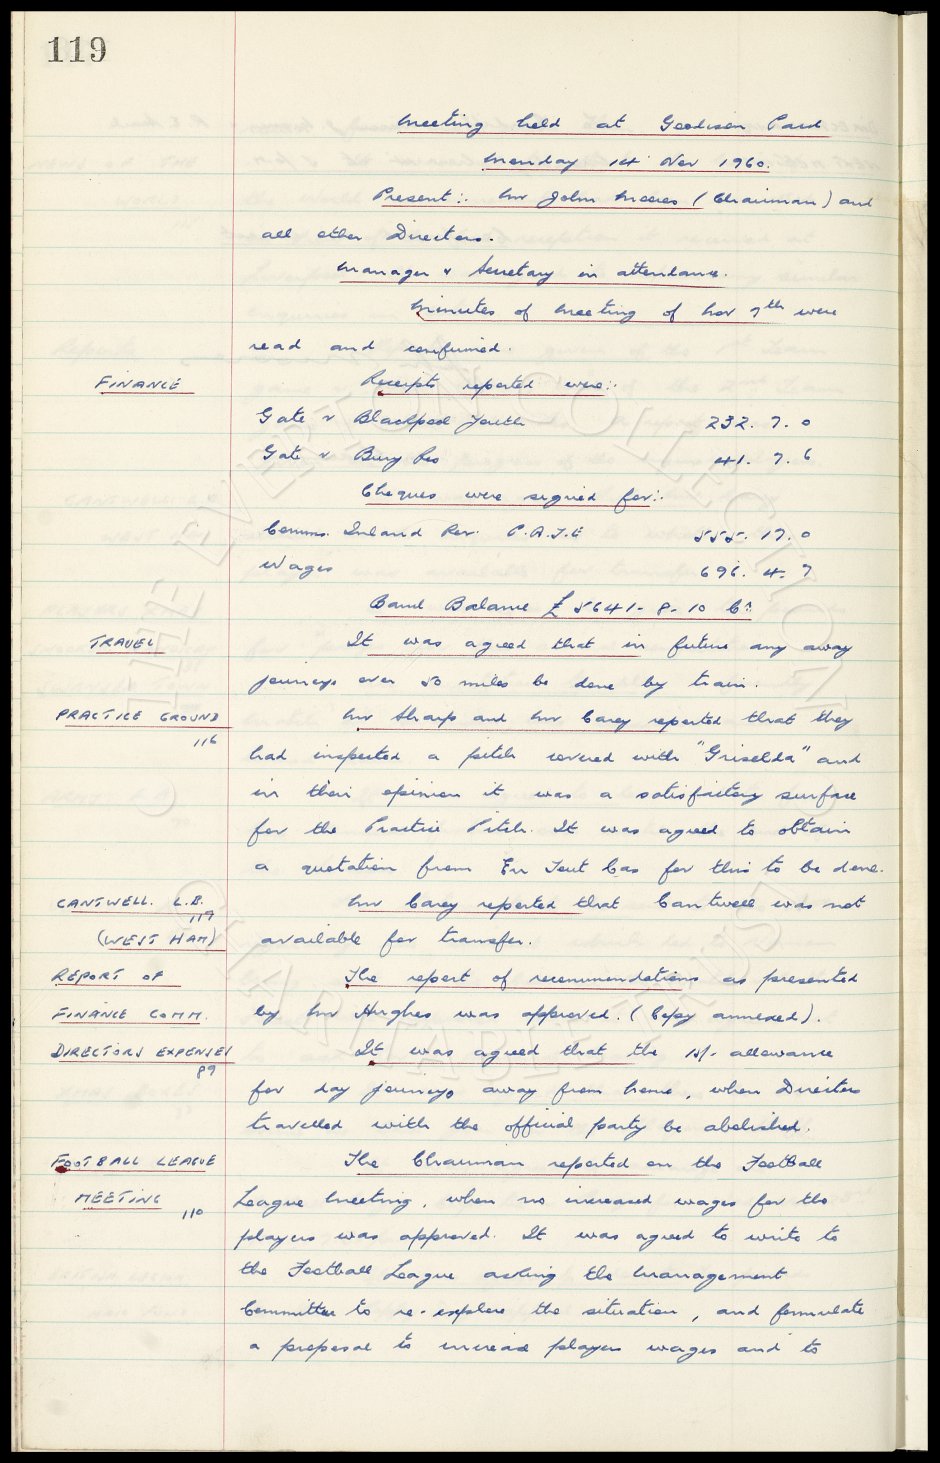 119
Meeting held at Goodison Park
Monday 14 Nov 1960.
Present:- Mr John Moores (Chairman) and
all other Directors.
Manager & Secretary in attendance.
Minutes of Meeting of Nov 7th were
read and confirmed.
FINANCE Receipts reported were:-
Gate v Blackpool Youth 232. 7. 0
Gate v Bury Res 41. 7. 6
Cheques were signed for:-
Comms. Inland Rev. P.A.Y.E 555. 17. 0
Wages 696. 4. 7
Bank Balance £5641-8-10 Cr.
TRAVEL It was agreed that in future any away
journeys over 50 miles be done by train.
PRACTICE GROUND Mr Sharp and Mr Carey reported that they
116
had inspected a pitch covered with "Griselda" and
in their opinion it was a satisfactory surface
for the Practice Pitch. It was agreed to obtain
a quotation from En Tout Cas for this to be done.
CANTWELL. L.B. Mr Carey reported that Cantwell was not
117
(WEST HAM) available for transfer.
REPORT OF The report of recommendations as presented
FINANCE COMM. by Mr Hughes was approved. (Copy annexed).
DIRECTORS EXPENSES It was agreed that the 15/- allowance
89
for day journeys away from home, when Directors
travelled with the official party be abolished.
FOOTBALL LEAGUE The Chairman reported on the Football
MEETING League Meeting, when no increased wages for the
110
players was approved. It was agreed to write to
the Football League asking the Management
Committee to re-explore the situation, and formulate
a proposal to increase players wages and to
THE EVERTON COLLECTION
CHARITABLE TRUST